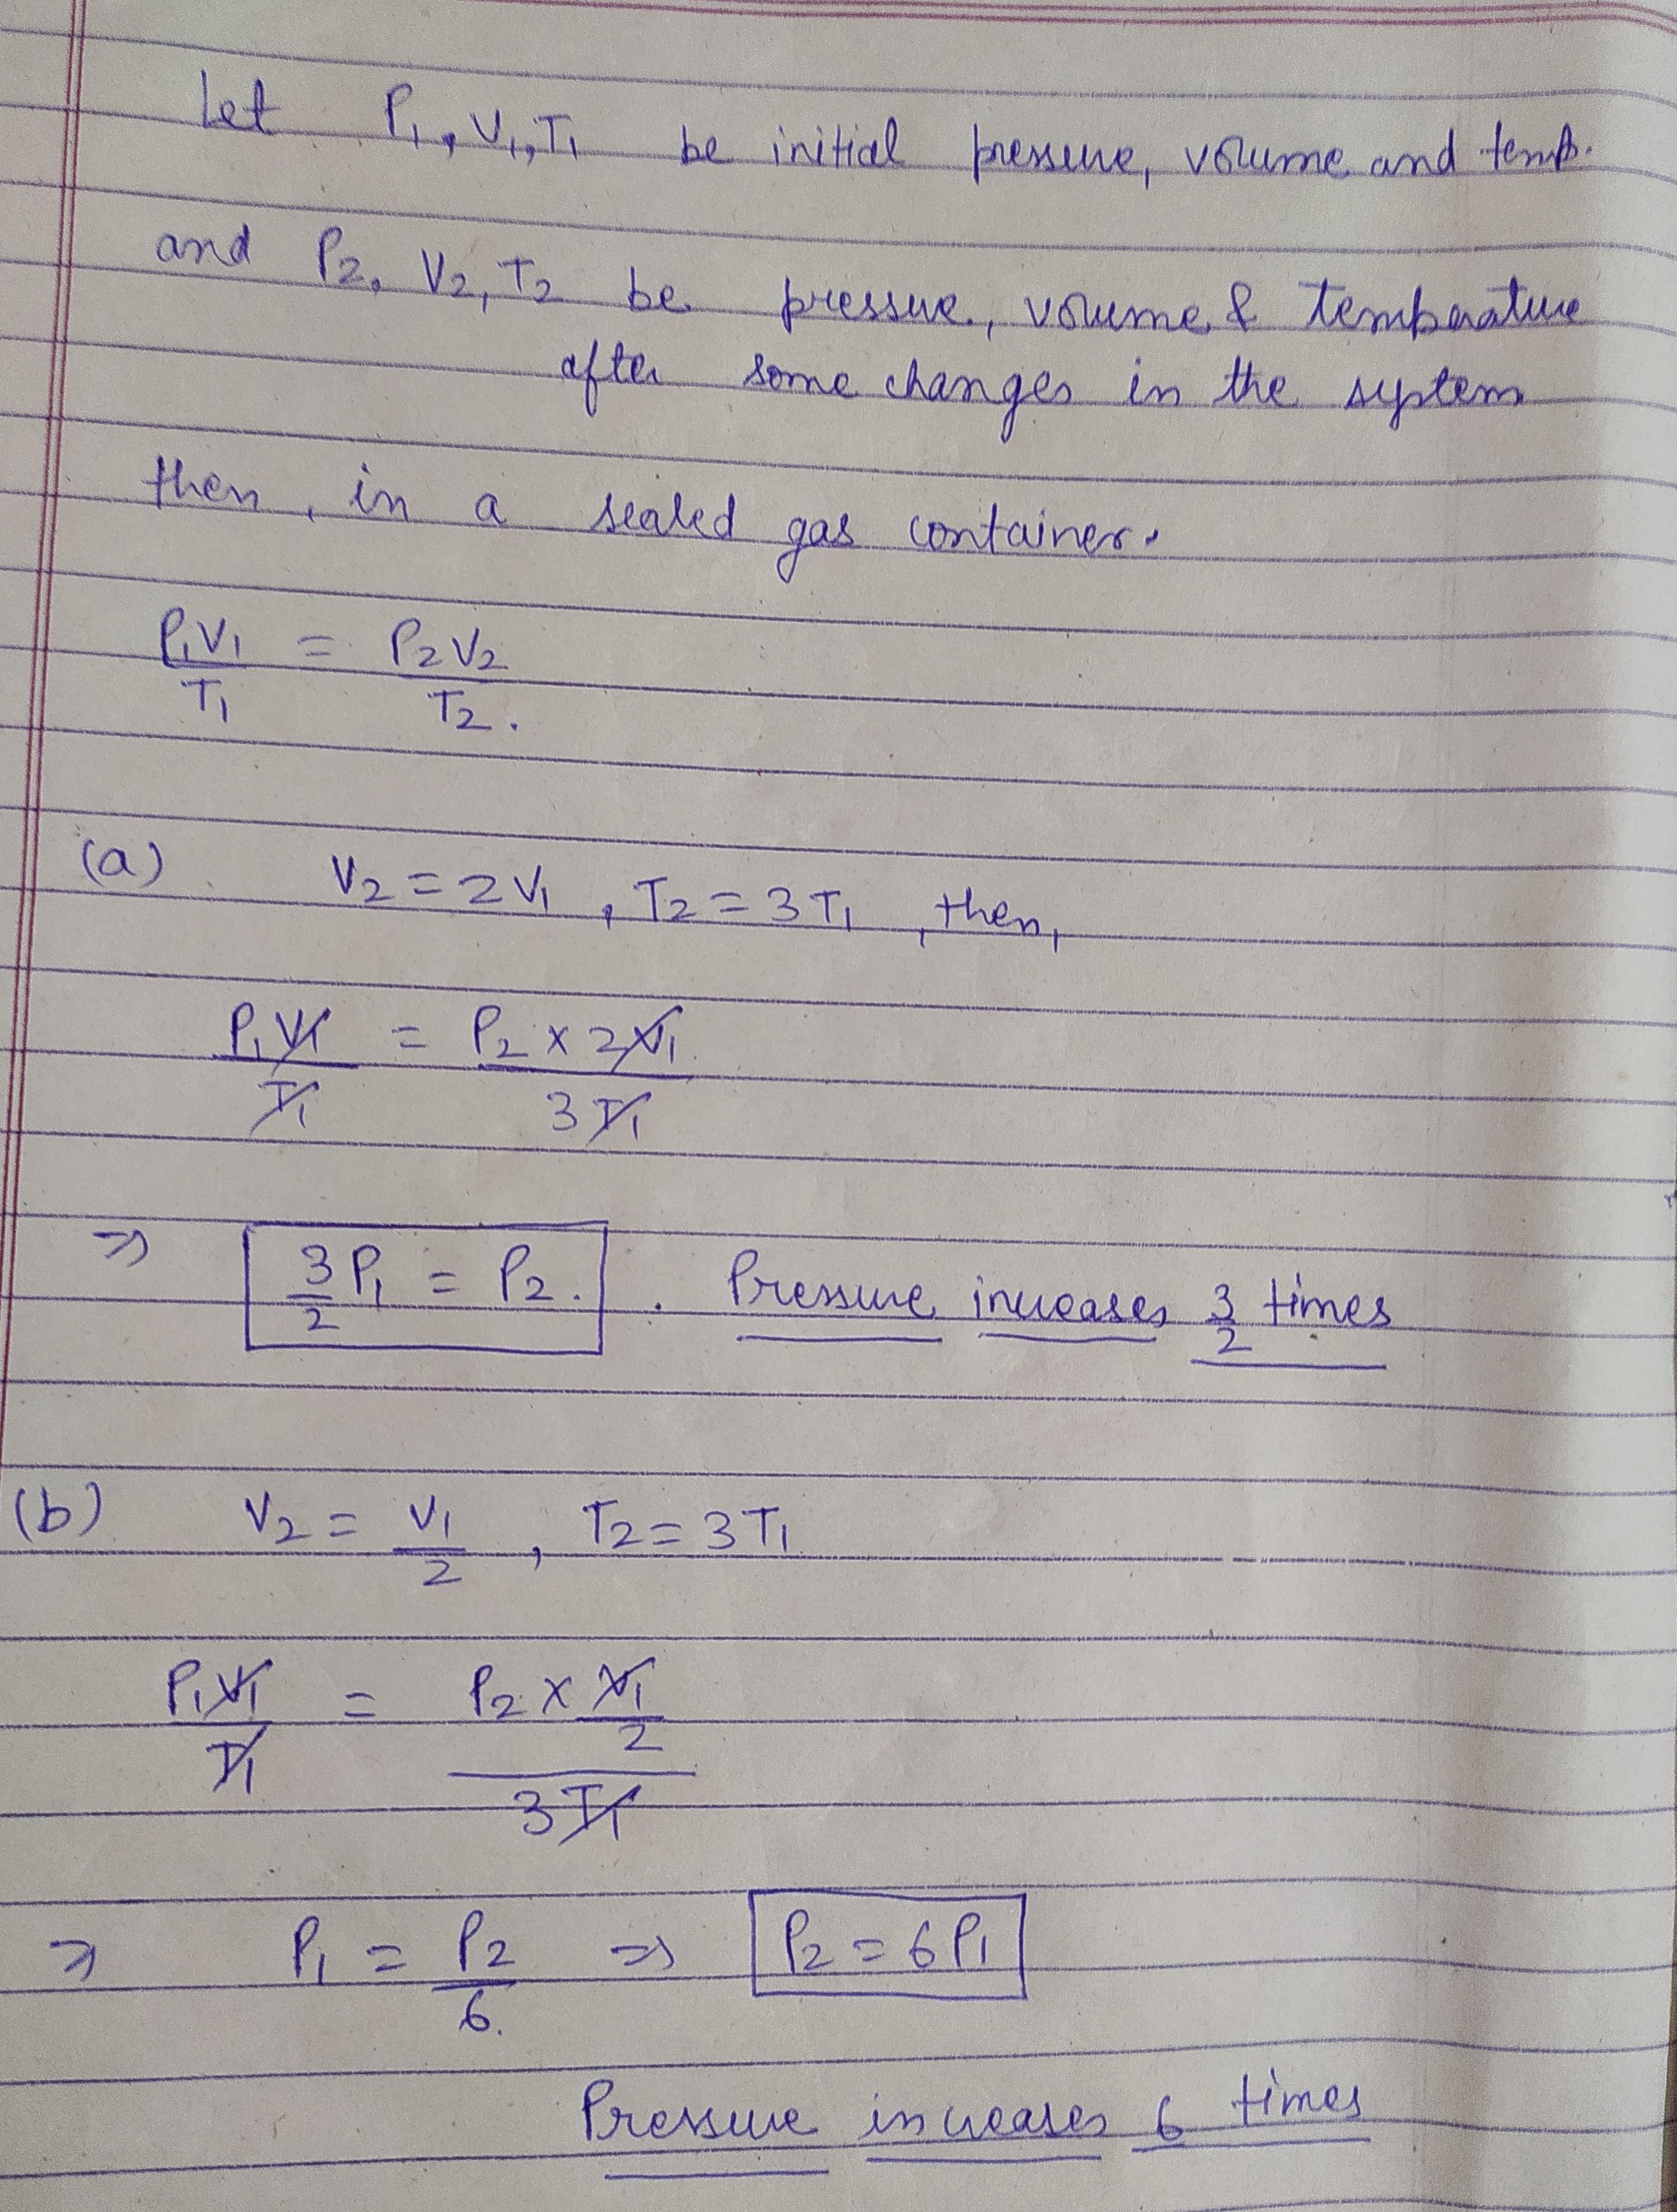 Let P₁, V₁, T₁ be initial pressure, volume and temp.
and P₂, V₂, T₂ be pressure, volume & temperature
after some changes in the system
then, in a sealed gas container.
P₁V₁/T₁ = P₂V₂/T₂.
(a) V₂ = 2V₁, T₂ = 3T₁, then,
P₁V₁/T₁ = P₂ × 2V₁/3T₁
⇒ 3/2 P₁ = P₂. . Pressure increases 3/2 times
(b) V₂ = V₁/2, T₂ = 3T₁
P₁V₁/T₁ = P₂ × V₁/2 / 3T₁
⇒ P₁ = P₂/6. ⇒ P₂ = 6P₁
Pressure increases 6 times